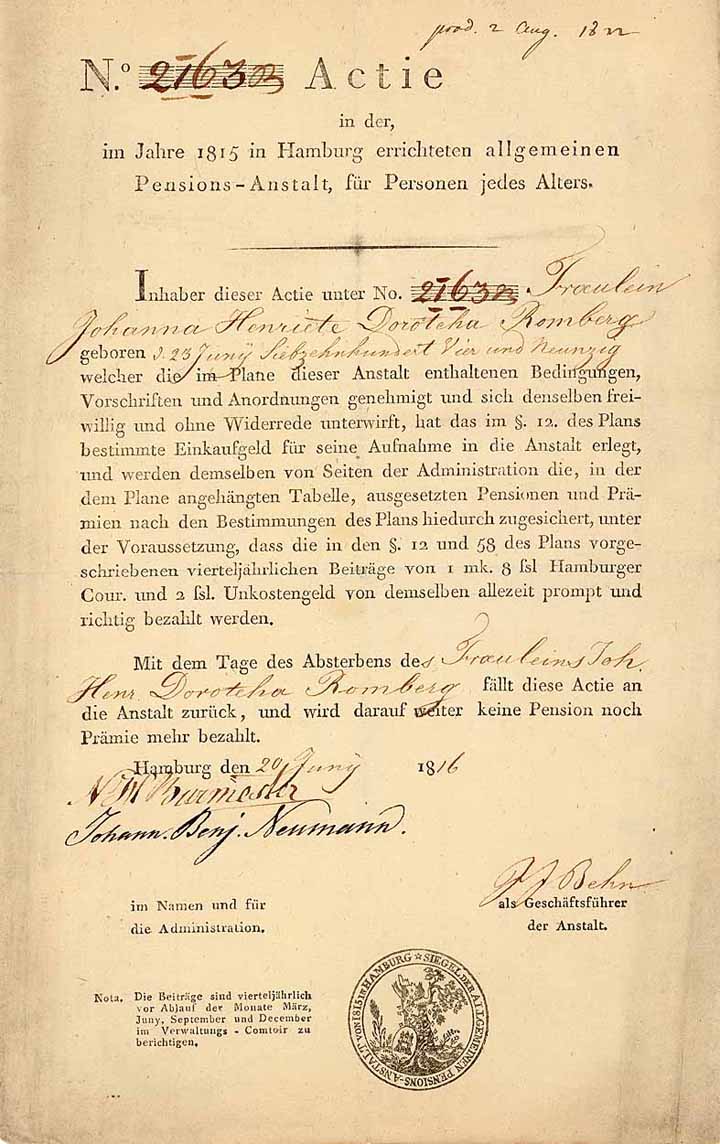 prod. 2 Aug. 1822
N.º 2163 B Actie
in der,
im Jahre 1815 in Hamburg errichteten allgemeinen
Pensions-Anstalt, für Personen jedes Alters.
Inhaber dieser Actie unter No. 2163 B Fraulein
Johanna Henriete Dorotcha Romberg
geboren d. 23 Juny Siebzehnhundert Vier und Neunzig
welcher die im Plane dieser Anstalt enthaltenen Bedingungen,
Vorschriften und Anordnungen genehmigt und sich denselben frei-
willig und ohne Widerrede unterwirft, hat das im §. 12. des Plans
bestimmte Einkaufgeld für seine Aufnahme in die Anstalt erlegt,
und werden demselben von Seiten der Administration die, in der
dem Plane angehängten Tabelle, ausgesetzten Pensionen und Prä-
mien nach den Bestimmungen des Plans hiedurch zugesichert, unter
der Voraussetzung, dass die in den §. 12 und 58 des Plans vorge-
schriebenen vierteljährlichen Beiträge von 1 mk. 8 ssl Hamburger
Cour. und 2 ssl. Unkostengeld von demselben allezeit prompt und
richtig bezahlt werden.
Mit dem Tage des Absterbens des Frauleins Joh.
Henr. Dorotcha Romberg fällt diese Actie an
die Anstalt zurück, und wird darauf weiter keine Pension noch
Prämie mehr bezahlt.
Hamburg den 20 Juny 1816
Burmester
Johann. Benj. Neumann.
J J Behn
im Namen und für
die Administration.
als Geschäftsführer
der Anstalt.
Nota. Die Beiträge sind vierteljährlich
vor Ablauf der Monate März,
Juny, September und December
im Verwaltungs-Comtoir zu
berichtigen.
SIEGEL DER ALLGEMEINEN PENSIONS-ANSTALT VON 1815 IN HAMBURG